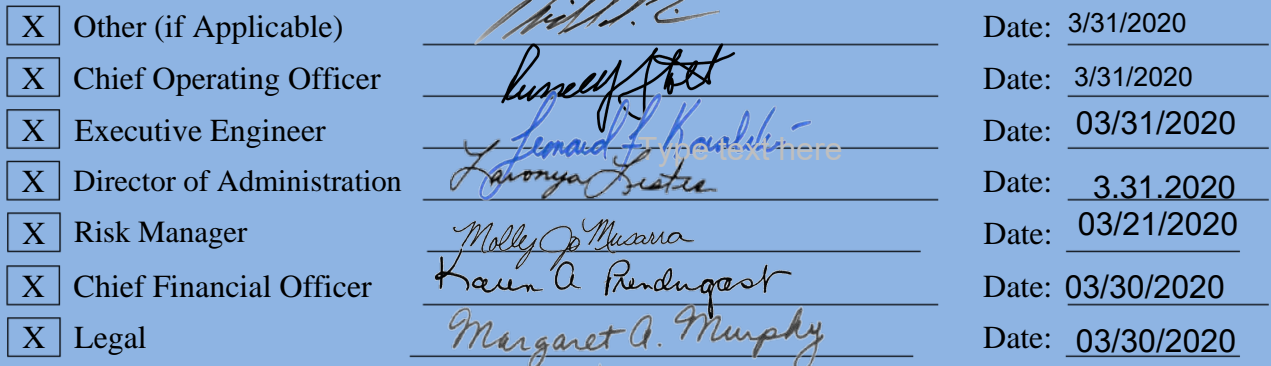 X Other (if Applicable) Date: 3/31/2020
X Chief Operating Officer Russell J Stolt Date: 3/31/2020
X Executive Engineer Leonard F. Kowalski Type text here Date: 03/31/2020
X Director of Administration Lavonya Lester Date: 3.31.2020
X Risk Manager Molly Jo Musarra Date: 03/21/2020
X Chief Financial Officer Karen A Prendergast Date: 03/30/2020
X Legal Margaret A. Murphy Date: 03/30/2020